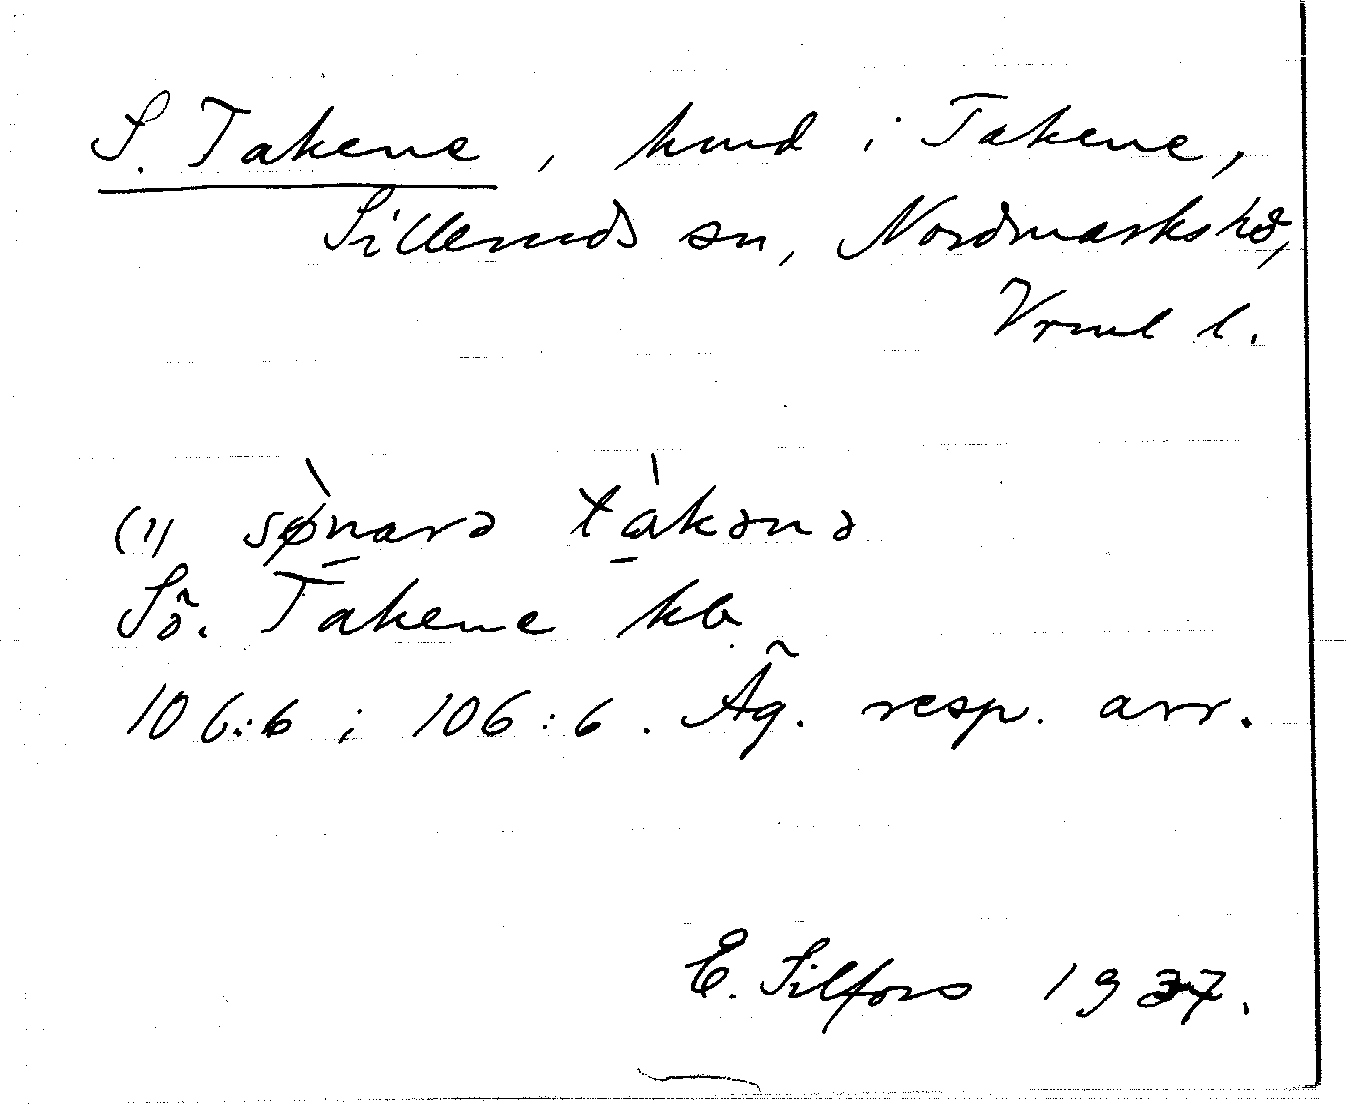 S. Takene, hmd i Takene,
Silleruds sn, Nordmarks hd,
Vrml l.
(1) sø̀narə tàkənə
Sö. Takene kb
106:6 ; 106:6. Äg. resp. arr.
E. Silfors 1937.